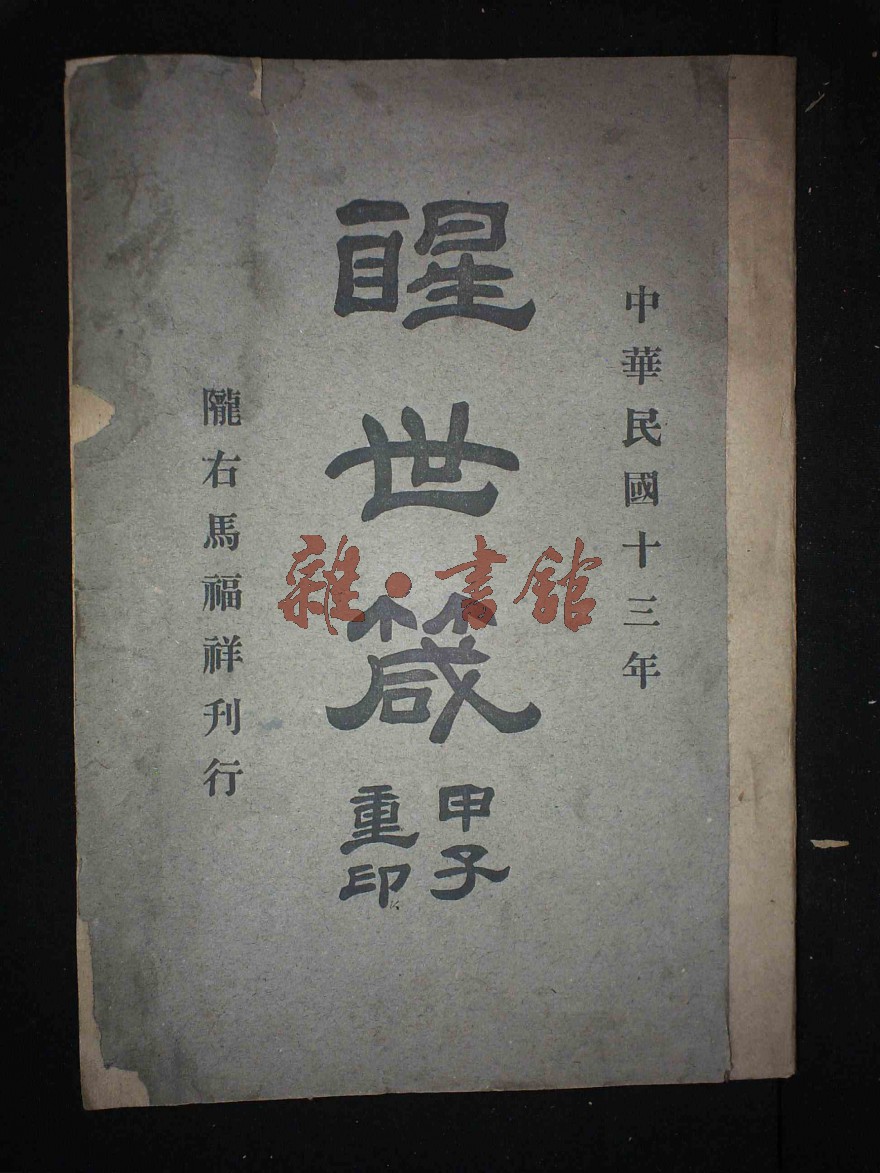 中華民國十三年
醒世箴
甲子
重印
隴右馬福祥刋行
雜·書館